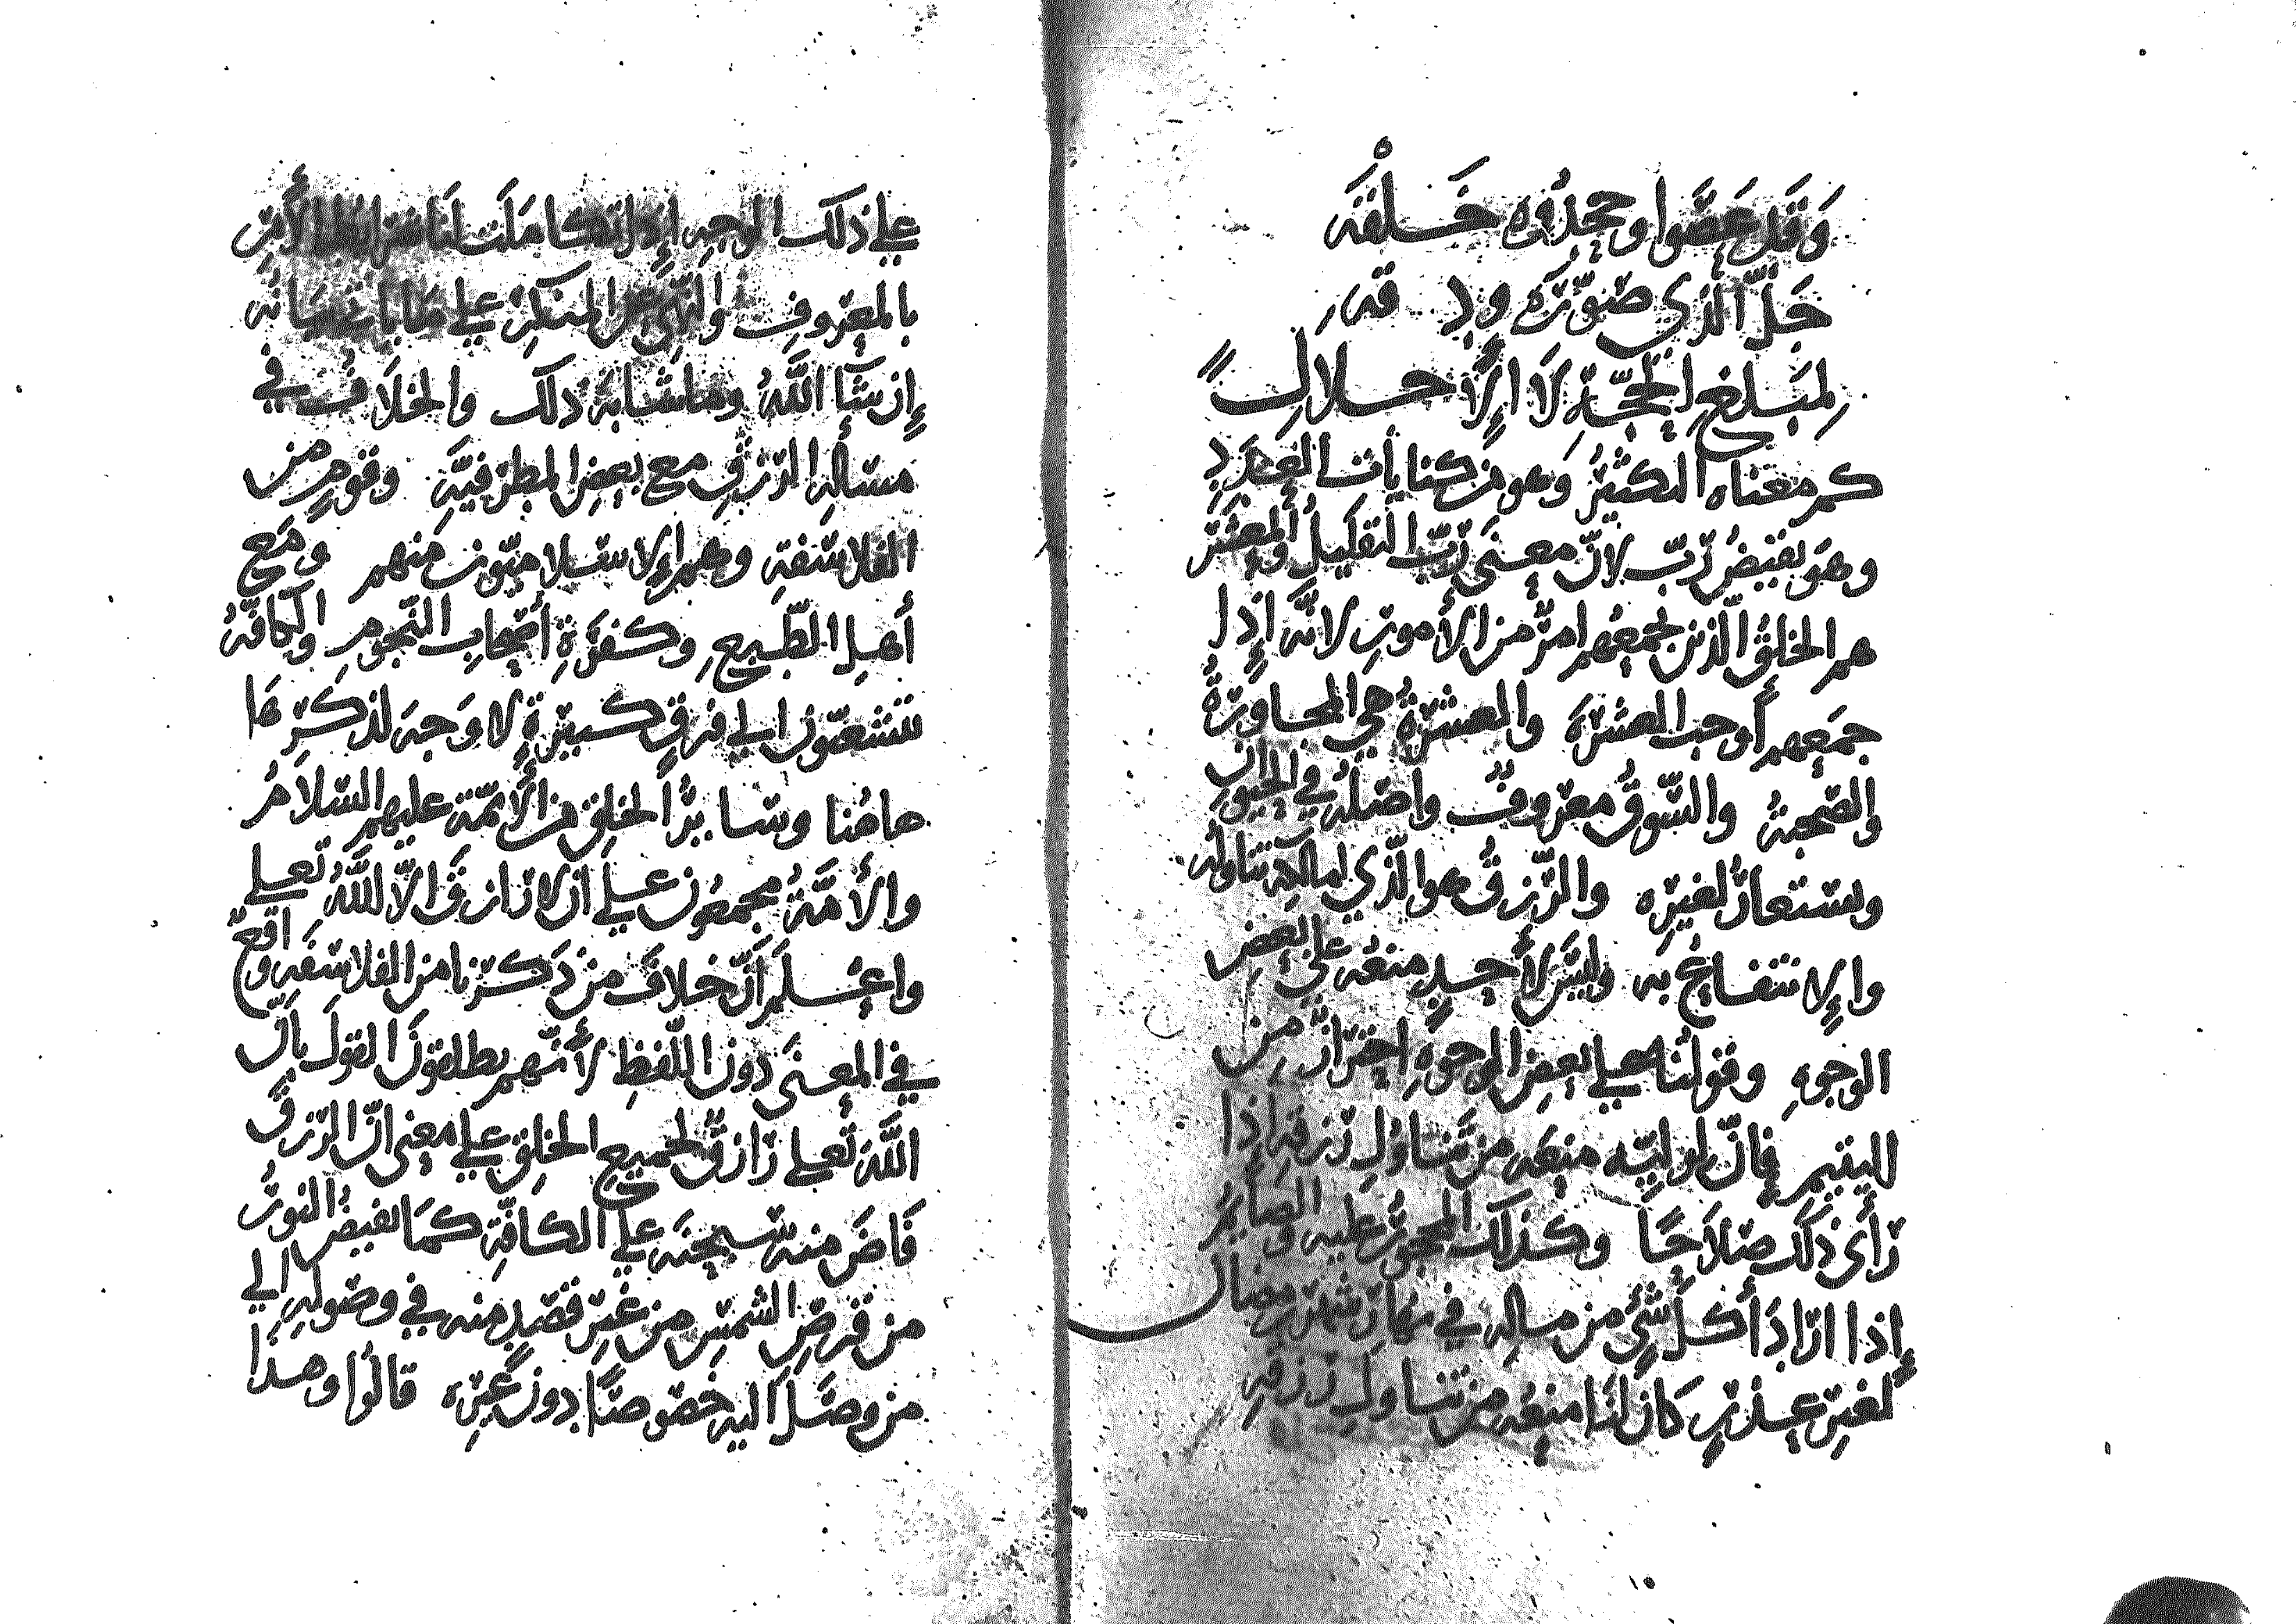 وَقَد عَصَوا وجحدُوه خَلْقَه
جَلّ الَّذي صَوَّرَه
لِمَبلَغِ الحُجَّةِ لَا إِلَّا حلالاً
كم معناه التكثيرُ وَهو من كنايات العدَدِ
وهو نقيضُ رُبّ لانّ معنَى رُبّ التقليلُ والمعشر
هم الخلقُ الّذين يجمعُهم امرٌ من الأمورِ لانَّه إذا
جمَعهم أوجب العشرَة والعشرةُ هي المجاورَةُ
والصحبةُ والسَّوقُ معروفٌ واصلُه في الحيوان
ويستعارُ لغيرِه والرّزقُ هو الّذي لمالكِه تناولُه
والإنتفاعُ به وليسَ لأحدٍ منعُه على بعضِ
الوجوهِ وقولُنا على بعضِ الوجوهِ احترازٌ من
اليتيم فإنّ لوليّه منعَه من تناوُلِ رزقِه إذا
رَأى ذلَك صلاَحًا وكذلك المحجورُ عليه والصائمُ
إذا ارَادَ أكلَ شَيْءٍ من مالِه في نهارِ شهرِ رمضان
لغيرِ عذرٍ كانَ لنَا منعُه من تناولِ رزقِه
على ذلك الوجهِ إذا تكاملَت لنا شرائطُ الأَمرِ
بالمعروفِ والنّهيِ عن المنكرِ على ما يأتي بيانُه
إن شآءَ اللَّهُ وما شابَهَ ذلك والخلَافُ في
مسألةِ الرّزقِ مع بعضِ المطرّفيَّةِ وقومٍ من
الفلاسَفةِ وهم الإسلاميّون منهم ومَع
أهلِ الطّبعِ وكفرَةِ أصحابِ النّجومِ والكافّةُ
يتشعّبون الى فرقٍ كبيرَةٍ لا وَجهَ لذكرِهَا
هاهُنا وسايرُ الخلقِ من الأئمّة عليهم السّلَامُ
والأمّةُ مجمعُون على ان لا رازقَ الاّ اللَّهُ تعلى
واعلَم أنّ خلافَ من ذَكرنا من الفلاسفَة واقعٌ
في المعنَى دونَ اللّفظِ لأنّهم يطلقونَ القولَ بأنّ
اللَّهَ تعلى رازقٌ لجميعِ الخلقِ على معنى انّ الرّزقَ
فَاضَ منه سبحنَه على الكافّةِ كمَا يفيضُ النورُ
من قرصِ الشمسِ من غيرِ قصدٍ منه في وصولِه الى
من وصَلَ اليه خصوصًا دونَ غيرِه قالُوا وهذَا